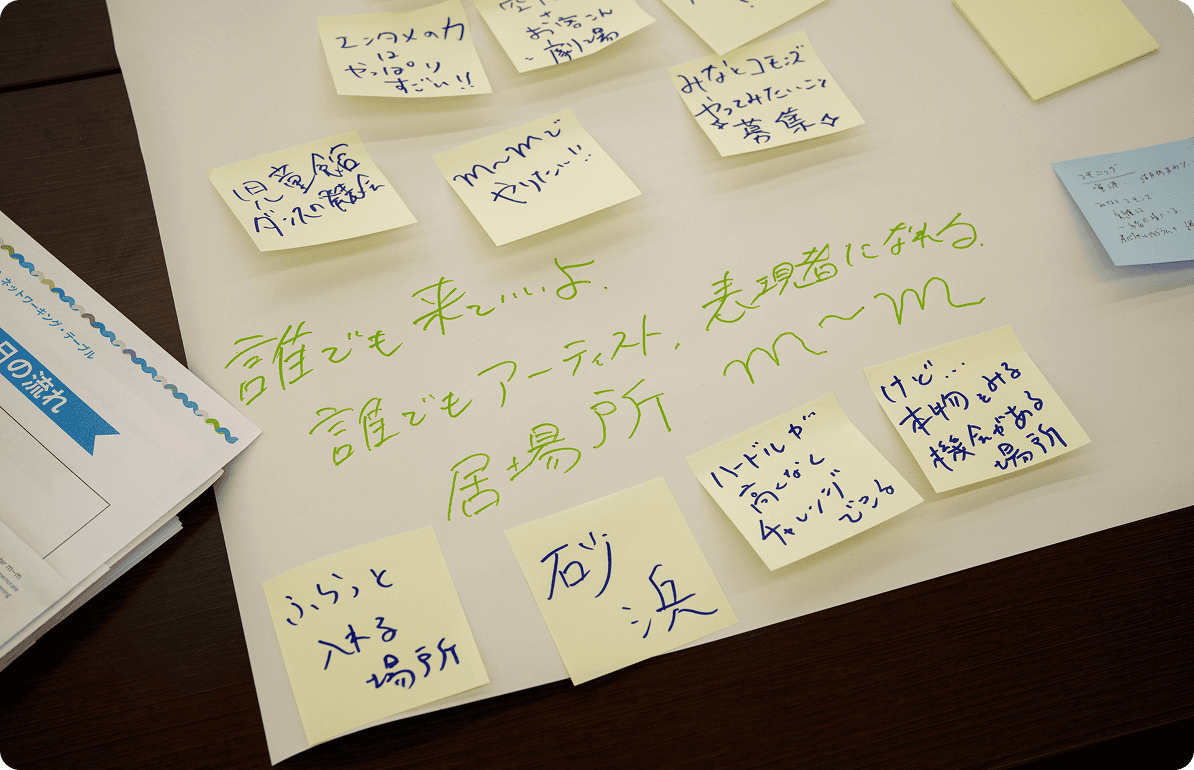 エンタメの力
は
やっぱり
すごい!!
さ
お客さん
劇場
みなとコモンズ
やってみたいこと
募集☆
旧意館
ダンスの発表会
m〜mで
やりたい!!
誰でも来ていいよ.
誰でもアーティスト,表現者になれる.
居場所 m〜m
けど…
本物とみる
機会がある
場所
ハードルが
高くなく
チャレンジ
できる
砂
浜
ふらっと
入れる
場所
ネットワーキング・テーブル
日の流れ